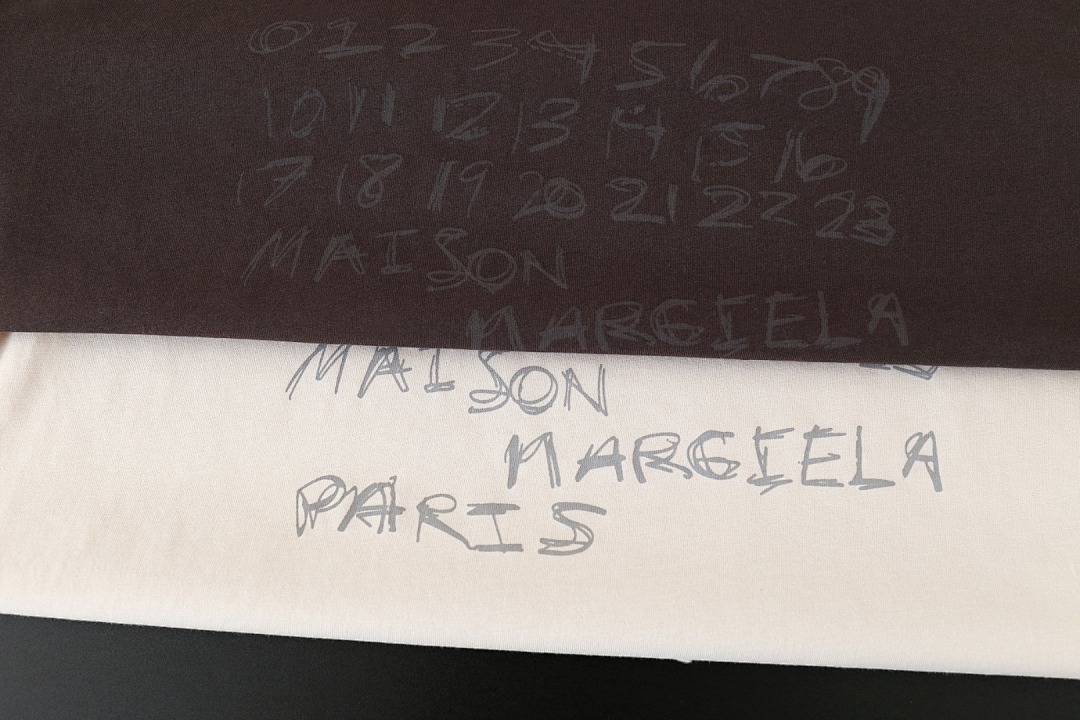 0 1 2 3 4 5 6 7 8 9
10 11 12 13 14 15 16
17 18 19 20 21 22 23
MAISON
MARGIELA
MAISON
MARGIELA
PARIS